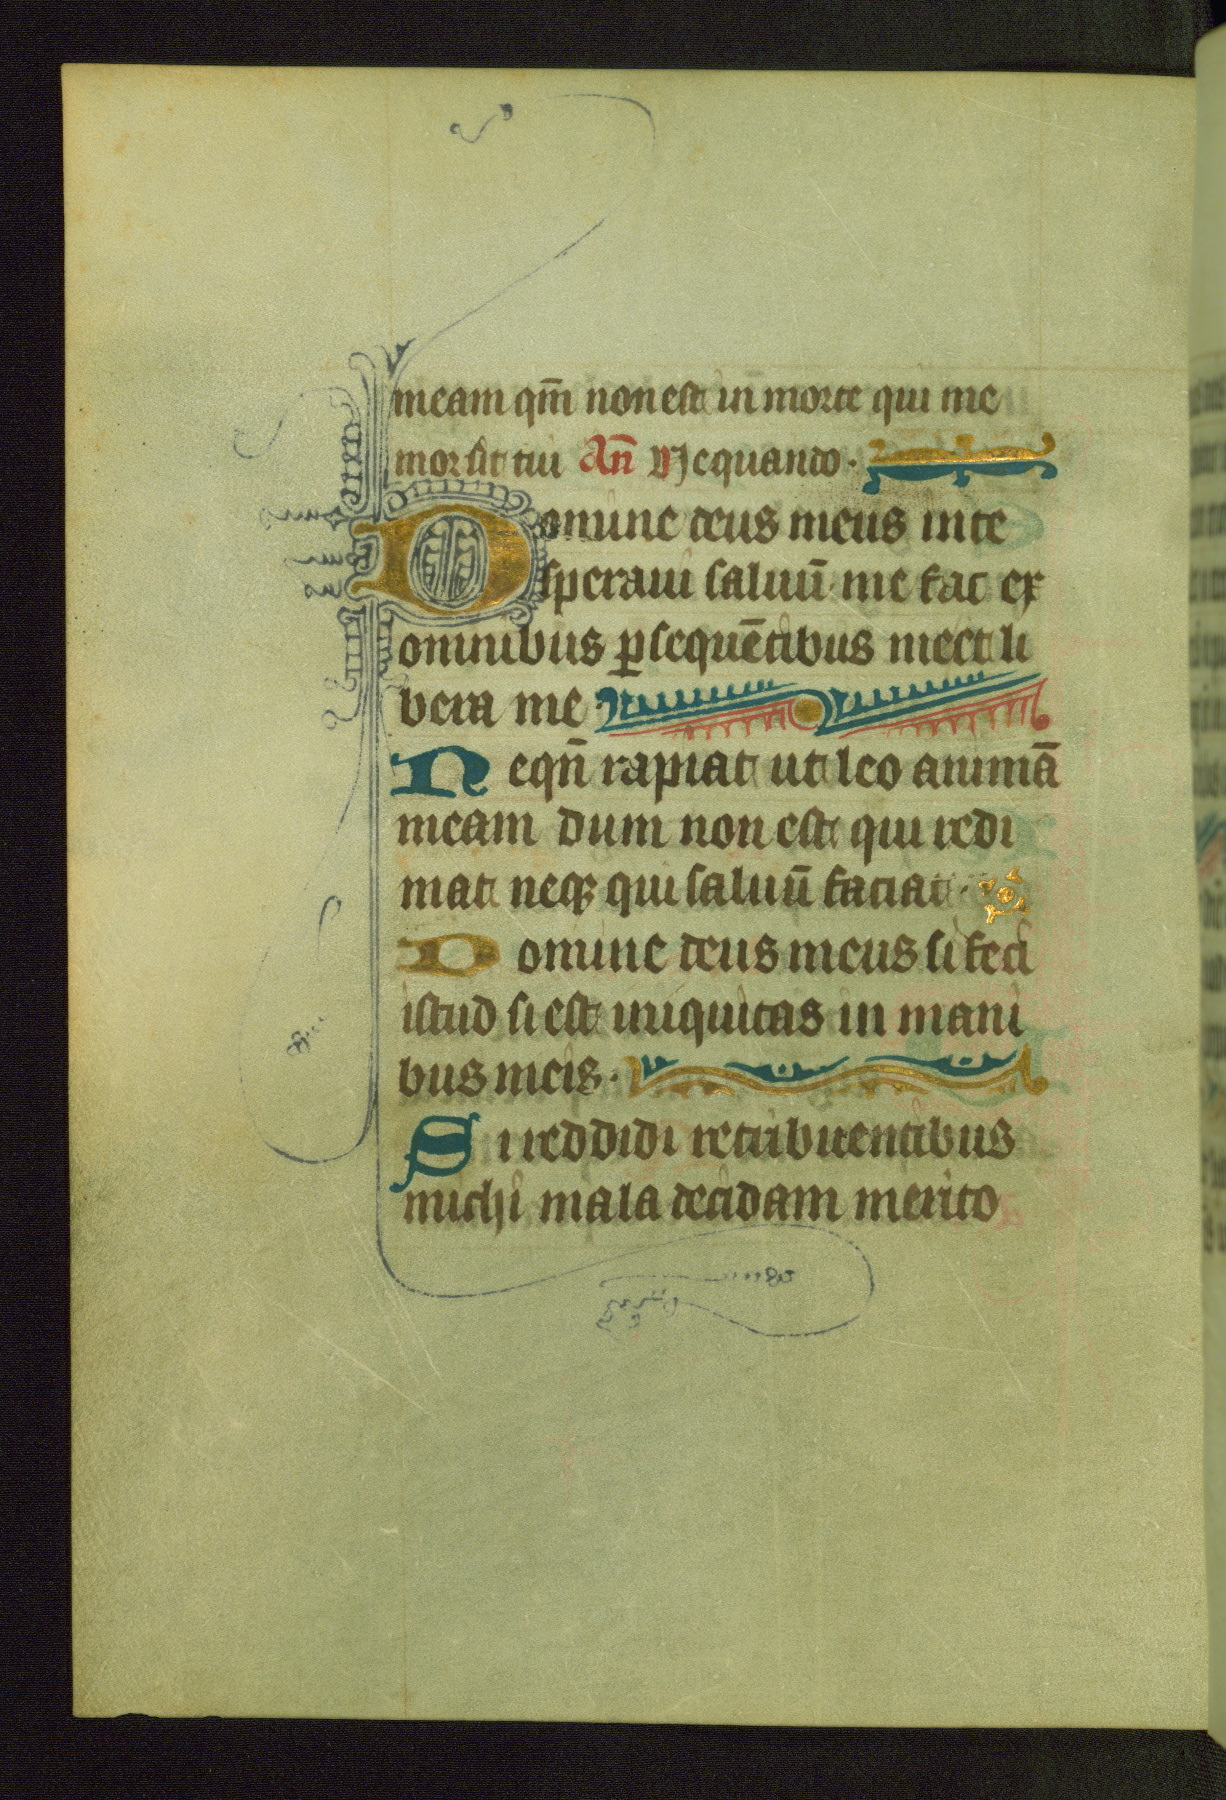 meam qm̄ non est in morte qui me
mor sit tui Añ Nequando.
Domine deus meus in te
speraui saluū me fac ex
omnibus ꝑsequētibus me et li
bera me
Neqn̄ rapiat ut leo animā
meam dum non est qui redi
mat neqꝫ qui saluū faciat.
Domine deus meus si feci
istud si est iniquitas in mani
bus meis.
Si reddidi retribuentibus
michi mala decidam merito